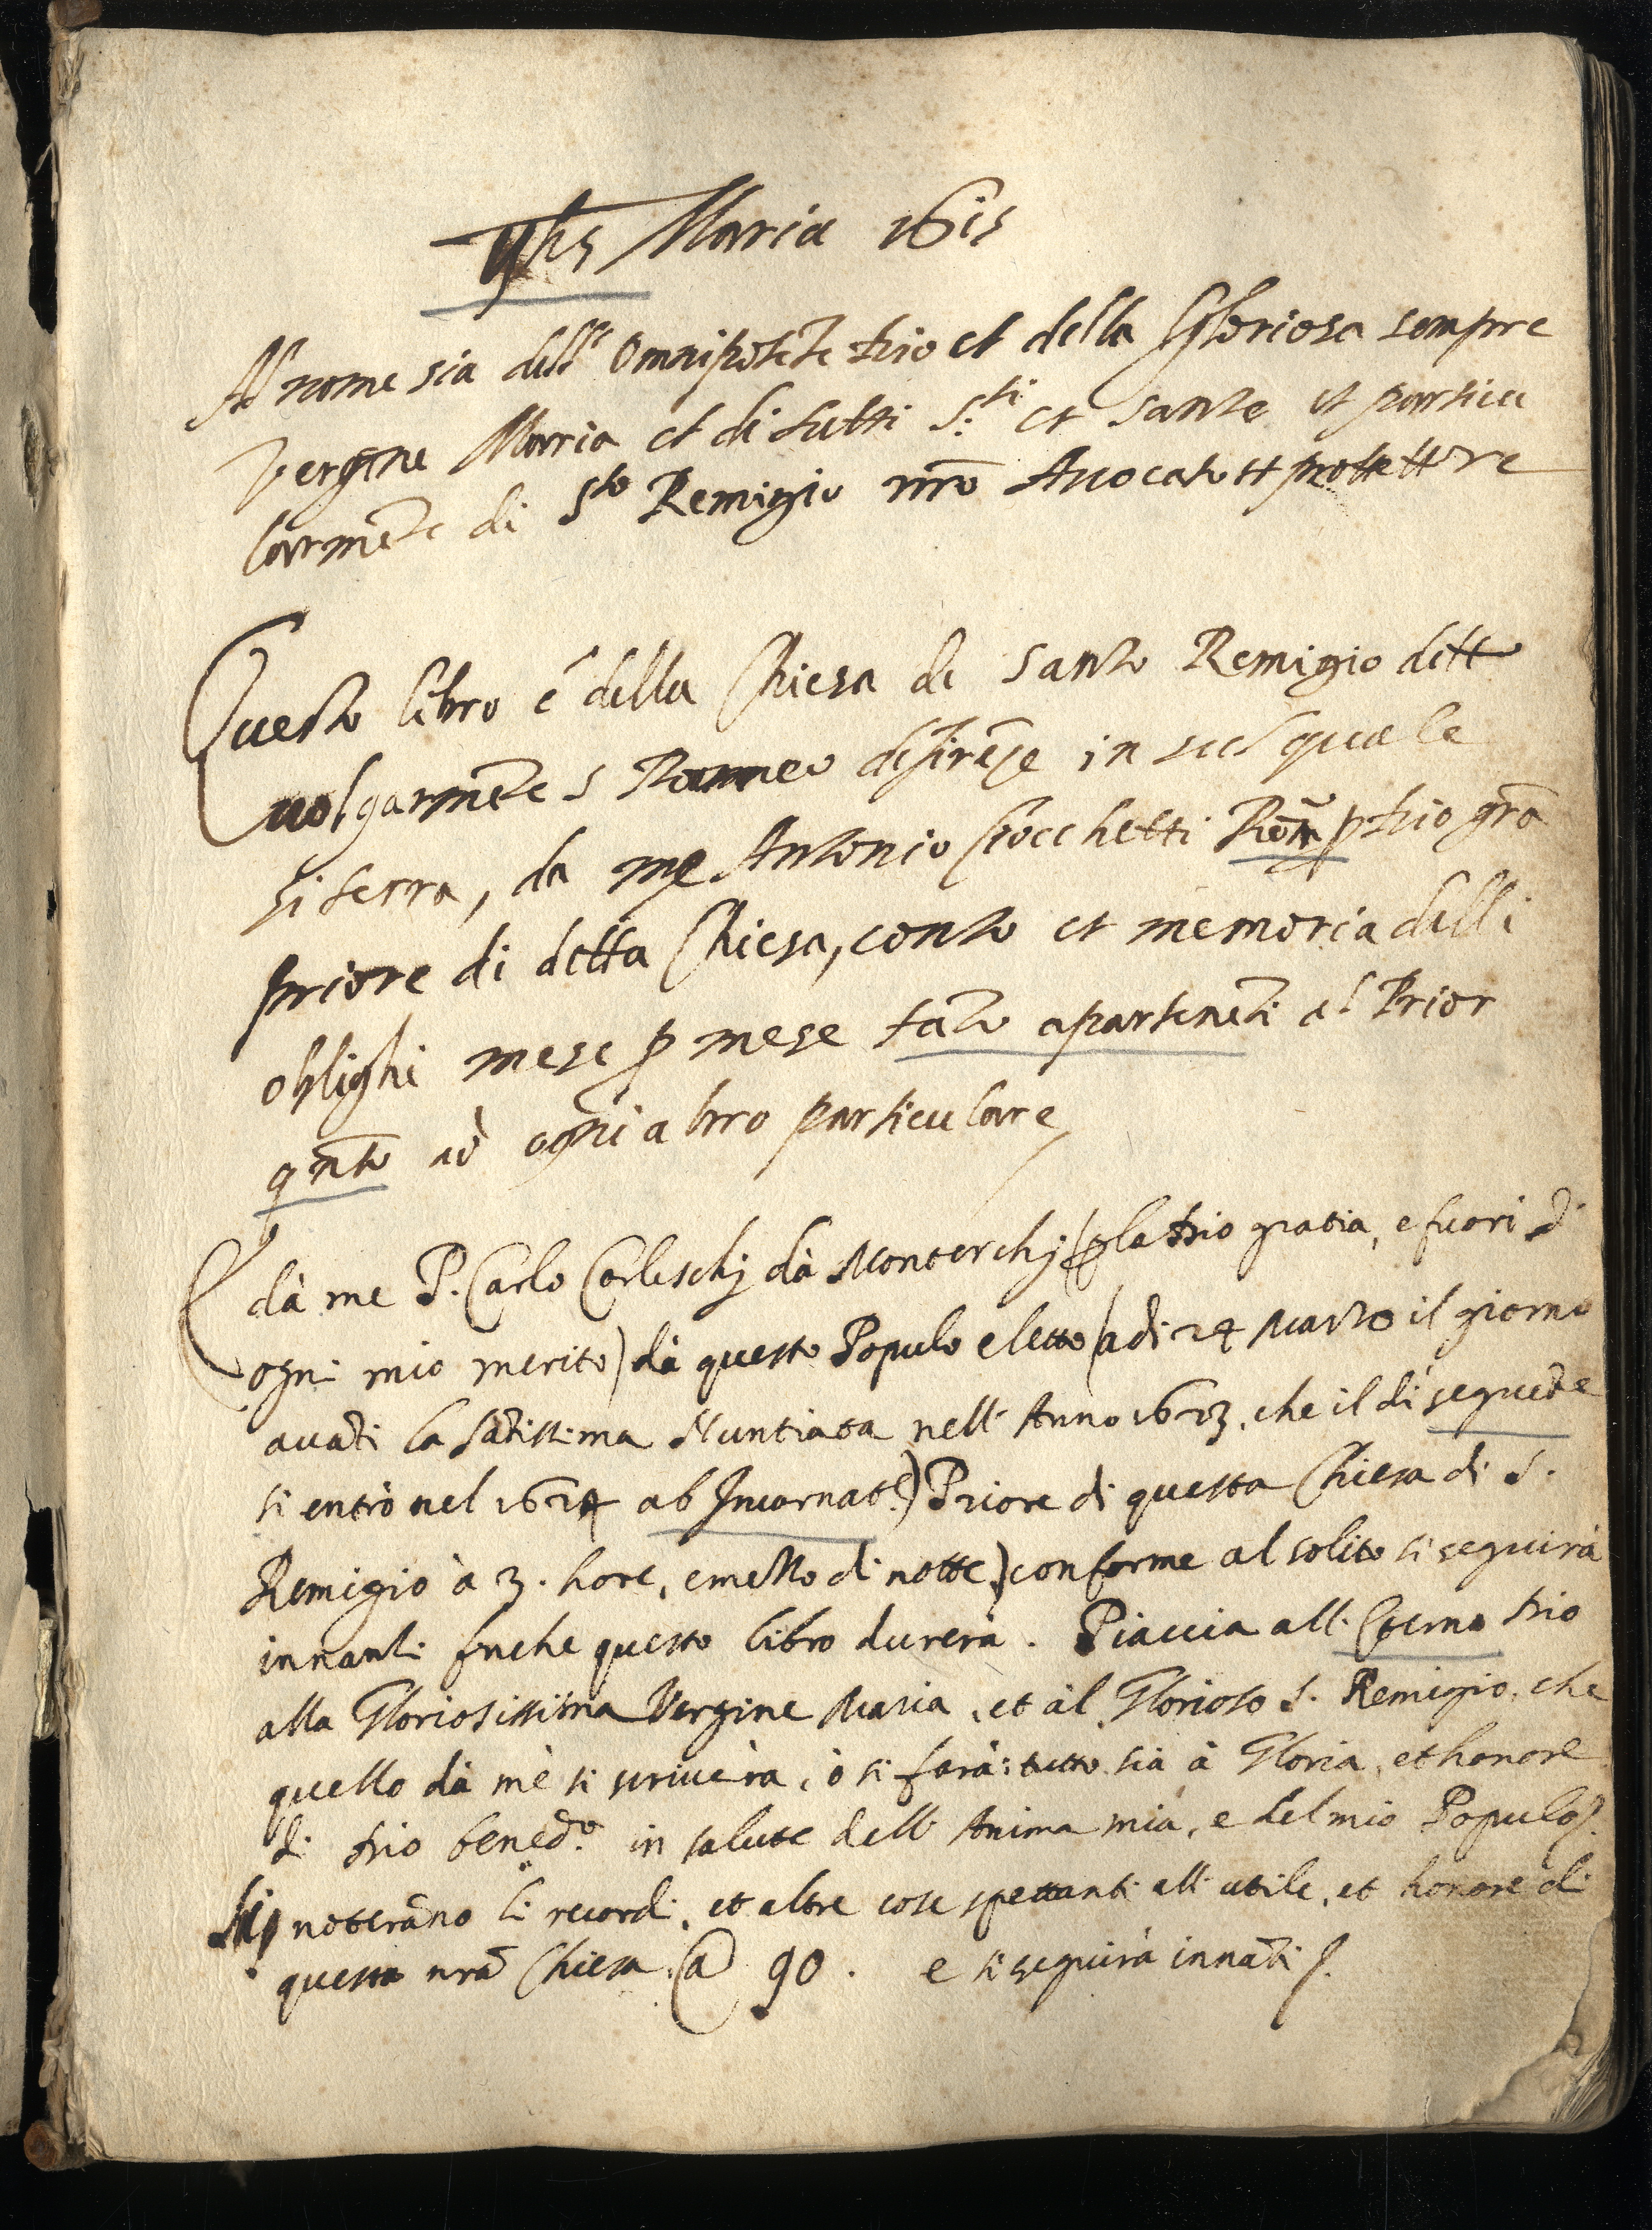 Yhs Maria 1615
Al nome sia dell' Omnipotēte Dio et della Gloriosa sempre
Vergine Maria et di tutti S.ti et Sante et particu
larmēte di Sto Remigio nr̄o Avocato et protettore
Questo libro è della Chiesa di Santo Remigio ditto
volgarmēte S Romeo di firēze in sul quale
si terra, da me Antonio Rom.o p Dio gr̄a
priore di detta Chiesa, conto et memoria delli
oblighi mese p mese tāto apartenēti al Prior
qn̄to ad ogni altro particulare
E dà me P. Carlo Carleschj dà Monterchj (p la Dio gratia, e fuori d'
ogni mio merito) dà questo Populo eletto (adi 24 Marzo il giorno
avāti la Sātissima Nuntiata nell' Anno 1623, che il dì seguēte
si entrò nel 1624 ab Incarnat.e) Priore di questa Chiesa di S.
Remigio à 3. hore, e mezzo di notte,) conforme al solito si seguirà
innanti finche questo libro durerà. Piaccia all' Eterno Dio
alla Gloriosissima Vergine Maria, et àl Glorioso S. Remigio, che
quello dà mè si scriverà, ò si farà: tutto sia à Gloria, et honore
di Dio bened.o in salute dell' Anima mia, e del mio Populo.
Si noterāno li ricordi, et altre cose spettanti all' utile, et honore di
questa nr̄a Chiesa. @ 90. e si seguirà innāti.